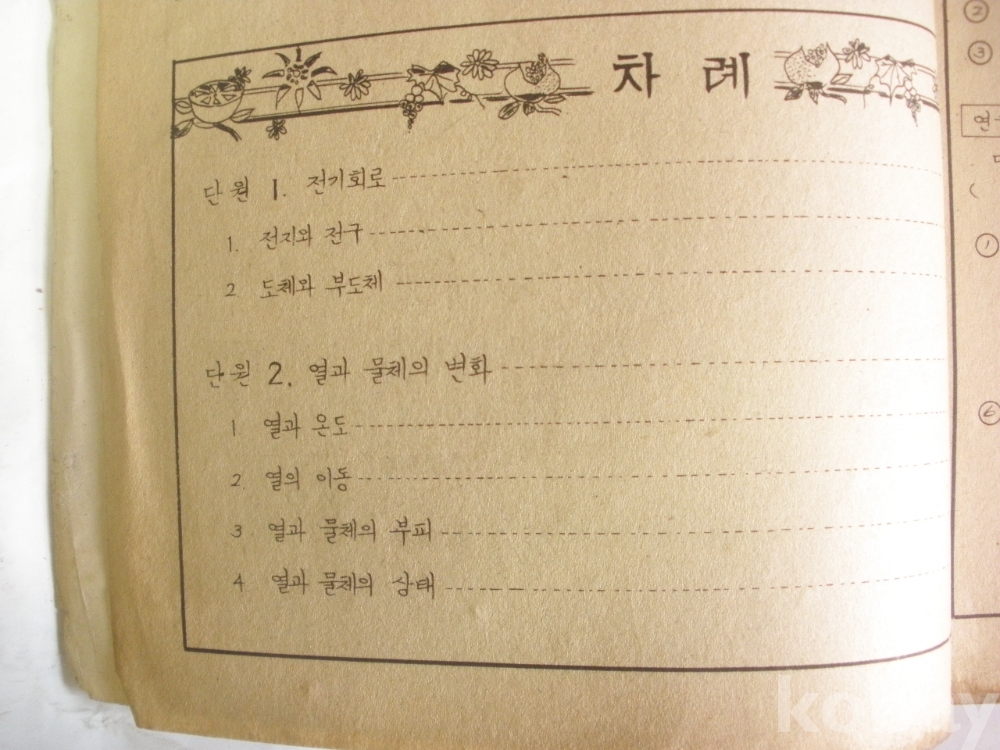 차 례
단원 1. 전기회로
1. 전지와 전구
2 도체와 부도체
단원 2. 열과 물체의 변화
1 열과 온도
2. 열의 이동
3 열과 물체의 부피
4 열과 물체의 상태
②
③
(
①
⑥